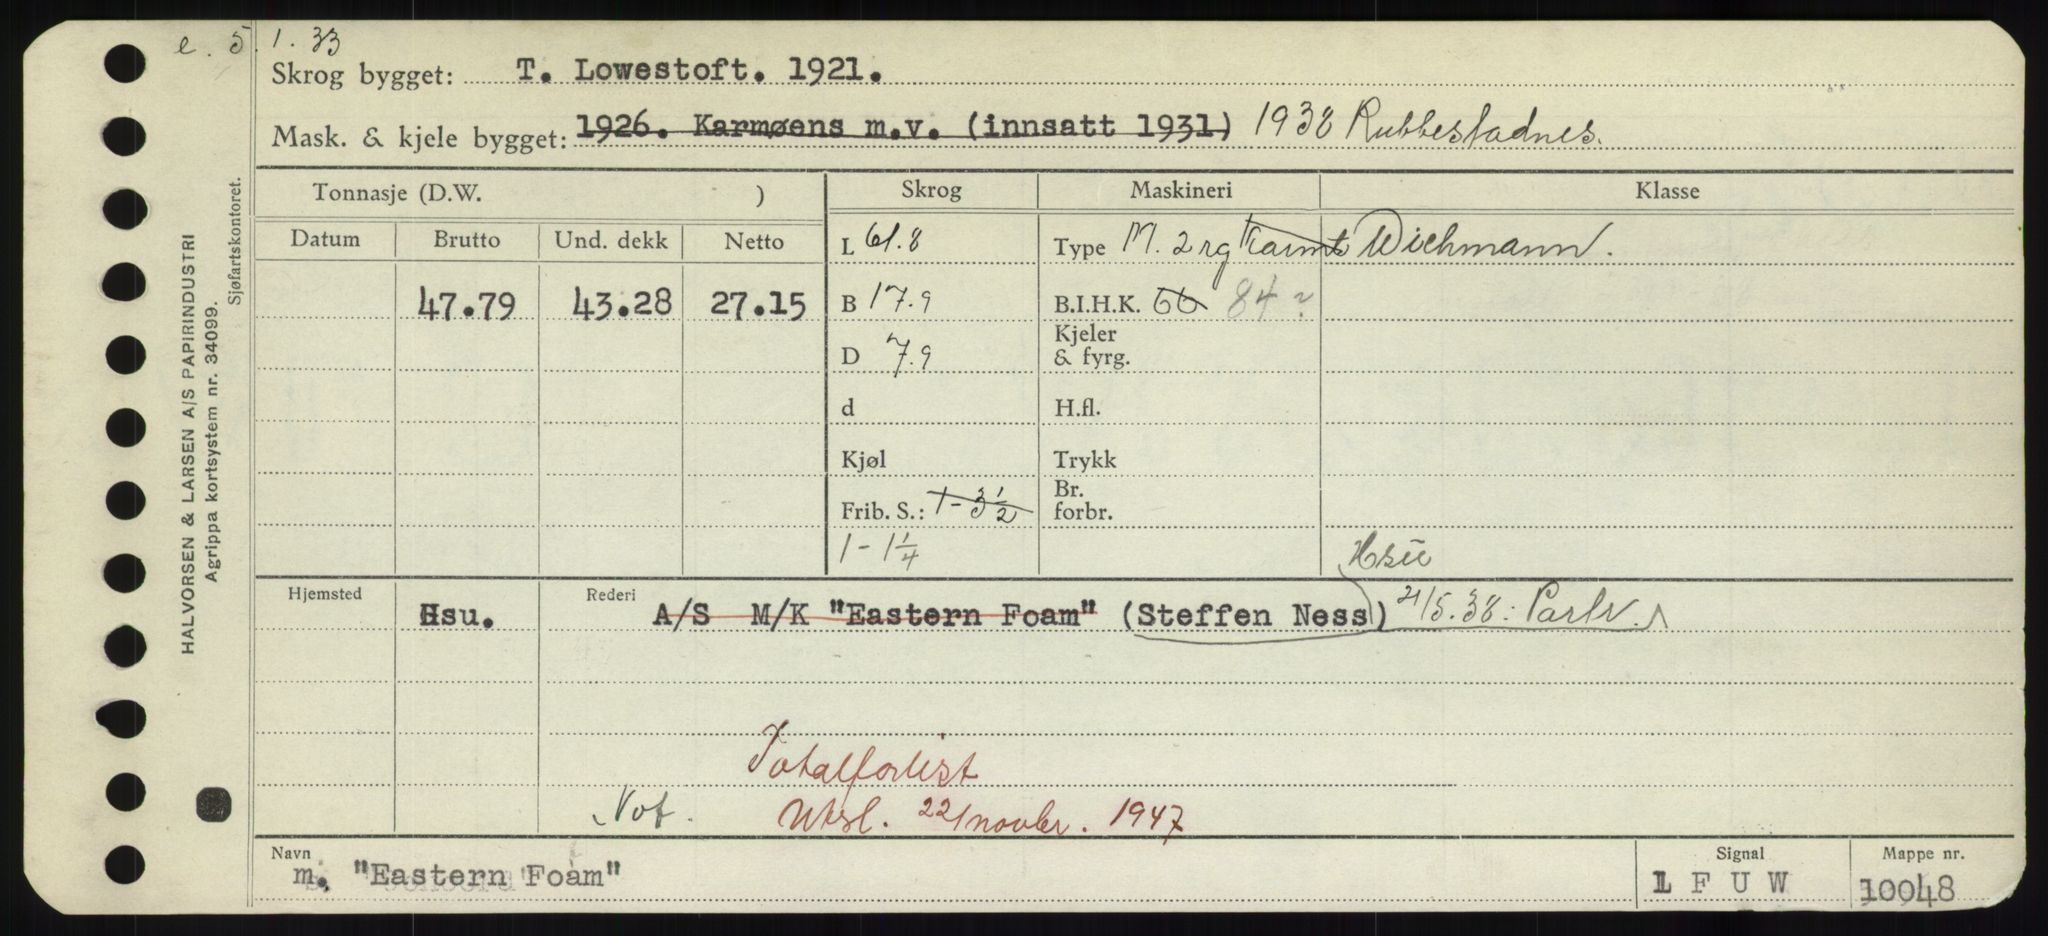 e. 5.1.33
Skrog bygget: T. Lowestoft. 1921.
Mask. & kjele bygget: 1926. Karmøens m.v. (innsatt 1931) 1938 Rubbestadnes.
Tonnasje (D.W. ) Skrog Maskineri Klasse
Datum Brutto Und. dekk Netto L 61.8 Type M. 2 rg Karmt Wichmann.
47.79 43.28 27.15 B 17.9 B.I.H.K. 66 84?
D 7.9 Kjeler & fyrg.
d H.fl.
Kjøl Trykk
Frib. S.: 1-3½ Br. forbr.
1-1¼
Hjemsted Rederi
Hsu. A/S M/K "Eastern Foam" (Steffen Ness) 21/5.38: Partr.
Totalforlist
Not. Utsl. 22/novbr. 1947
Navn Signal Mappe nr.
m. "Eastern Foam" L F U W 10048
HALVORSEN & LARSEN A/S PAPIRINDUSTRI
Agrippa kortsystem nr. 34099.
Sjøfartskontoret.